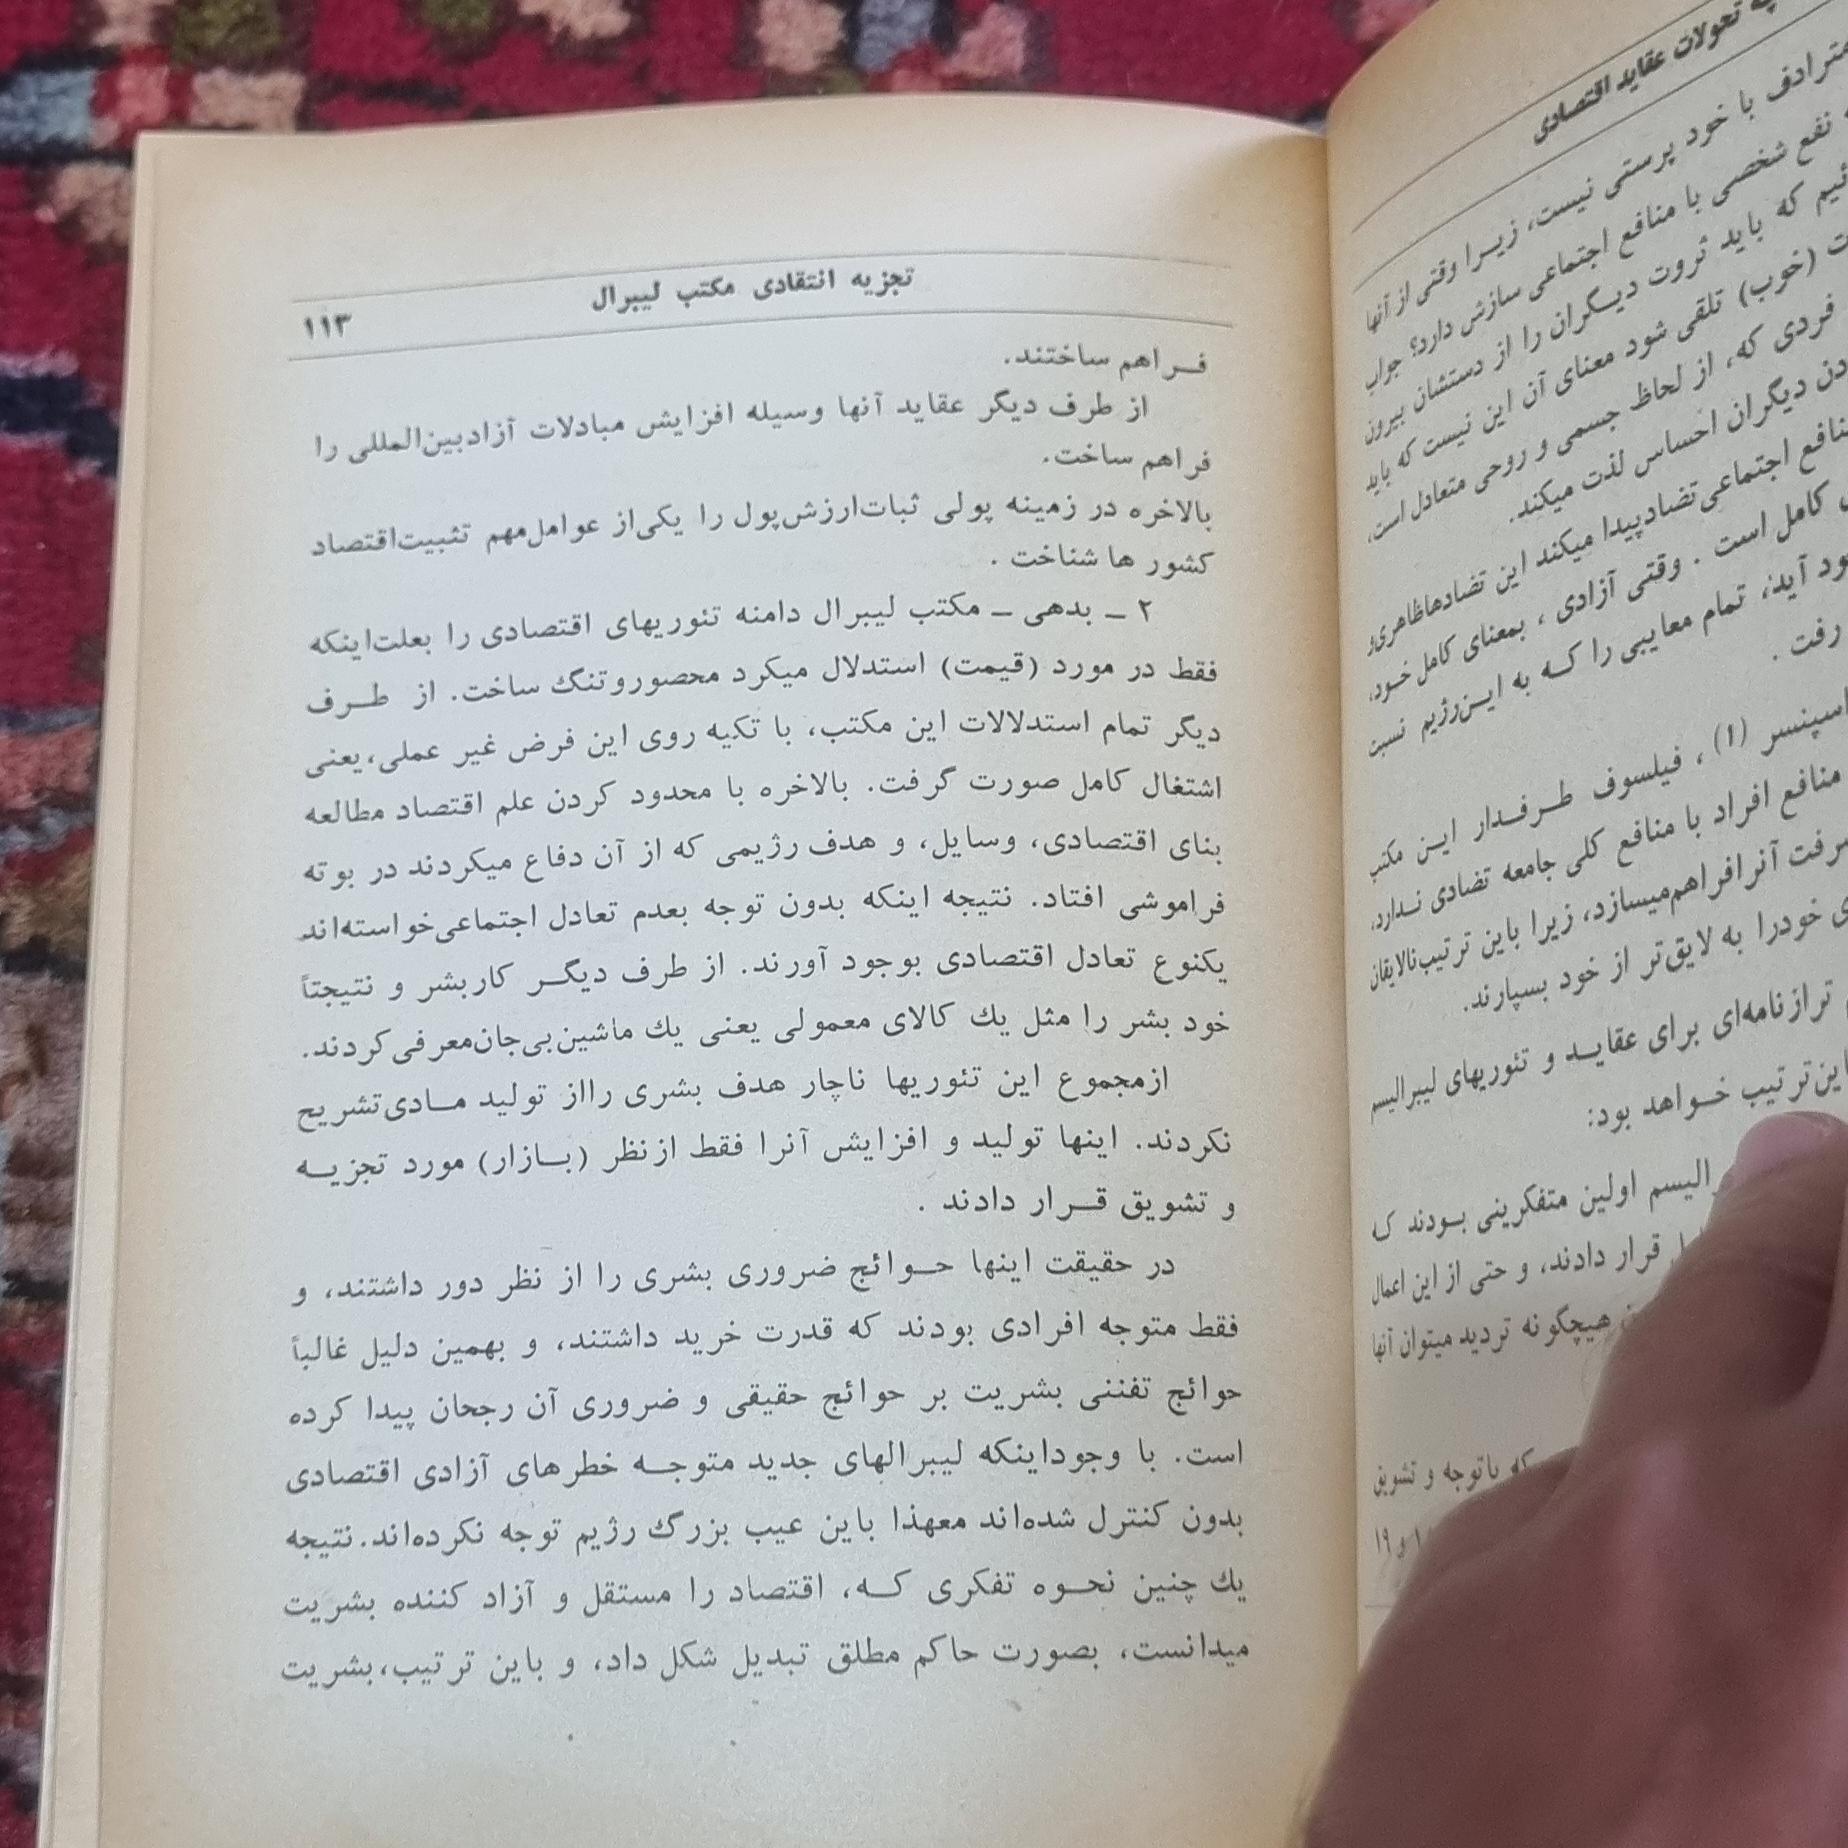 چه تحولات عقاید اقتصادی
مترادف با خود پرستی نیست، زیرا وقتی از آنها
نفع شخصی با منافع اجتماعی سازش دارد؟ جواب
که باید ثروت دیگران را از دستشان بیرون
(خوب) تلقی شود معنای آن این نیست که باید
فردی که، از لحاظ جسمی و روحی متعادل است،
دیگران احساس لذت میکند.
منافع اجتماعی تضادپیدا میکند این تضادهاظاهری‌و
کامل است . وقتی آزادی ، بمعنای کامل خود،
آید، تمام معایبی را که به این‌رژیم نسبت
رفت .
اسپنسر (۱)، فیلسوف طرفدار این مکتب
منافع افراد با منافع کلی جامعه تضادی ندارد،
آنرافراهم‌میسازد، زیرا باین ترتیب‌نالایقان
خودرا به لایق‌تر از خود بسپارند.
ترازنامه‌ای برای عقاید و تئوریهای لیبرالیسم
باین‌ترتیب خواهد بود:
اولین متفکرینی بودند ک
قرار دادند، و حتی از این اعمال
هیچگونه تردید میتوان آنها
که باتوجه و تشویق
و ۱۹
تجزیه انتقادی مکتب لیبرال
۱۱۳
فراهم ساختند.
از طرف دیگر عقاید آنها وسیله افزایش مبادلات آزادبین‌المللی را
فراهم ساخت.
بالاخره در زمینه پولی ثبات‌ارزش‌پول را یکی‌از عوامل‌مهم تثبیت‌اقتصاد
کشور ها شناخت .
۲ ـ بدهی ـ مکتب لیبرال دامنه تئوریهای اقتصادی را بعلت‌اینکه
فقط در مورد (قیمت) استدلال میکرد محصوروتنگ ساخت. از طرف
دیگر تمام استدلالات این مکتب، با تکیه روی این فرض غیر عملی،یعنی
اشتغال کامل صورت گرفت. بالاخره با محدود کردن علم اقتصاد مطالعه
بنای اقتصادی، وسایل، و هدف رژیمی که از آن دفاع میکردند در بوته
فراموشی افتاد. نتیجه اینکه بدون توجه بعدم تعادل اجتماعی‌خواسته‌اند
یکنوع تعادل اقتصادی بوجود آورند. از طرف دیگر کاربشر و نتیجتاً
خود بشر را مثل یك کالای معمولی یعنی یك ماشین‌بی‌جان‌معرفی‌کردند.
ازمجموع این تئوریها ناچار هدف بشری رااز تولید مادی‌تشریح
نکردند. اینها تولید و افزایش آنرا فقط ازنظر (بازار) مورد تجزیه
و تشویق قرار دادند .
در حقیقت اینها حوائج ضروری بشری را از نظر دور داشتند، و
فقط متوجه افرادی بودند که قدرت خرید داشتند، و بهمین دلیل غالباً
حوائج تفننی بشریت بر حوائج حقیقی و ضروری آن رجحان پیدا کرده
است. با وجوداینکه لیبرالهای جدید متوجه خطرهای آزادی اقتصادی
بدون کنترل شده‌اند معهذا باین عیب بزرگ رژیم توجه نکرده‌اند. نتیجه
یك چنین نحوه تفکری که، اقتصاد را مستقل و آزاد کننده بشریت
میدانست، بصورت حاکم مطلق تبدیل شکل داد، و باین ترتیب،بشریت